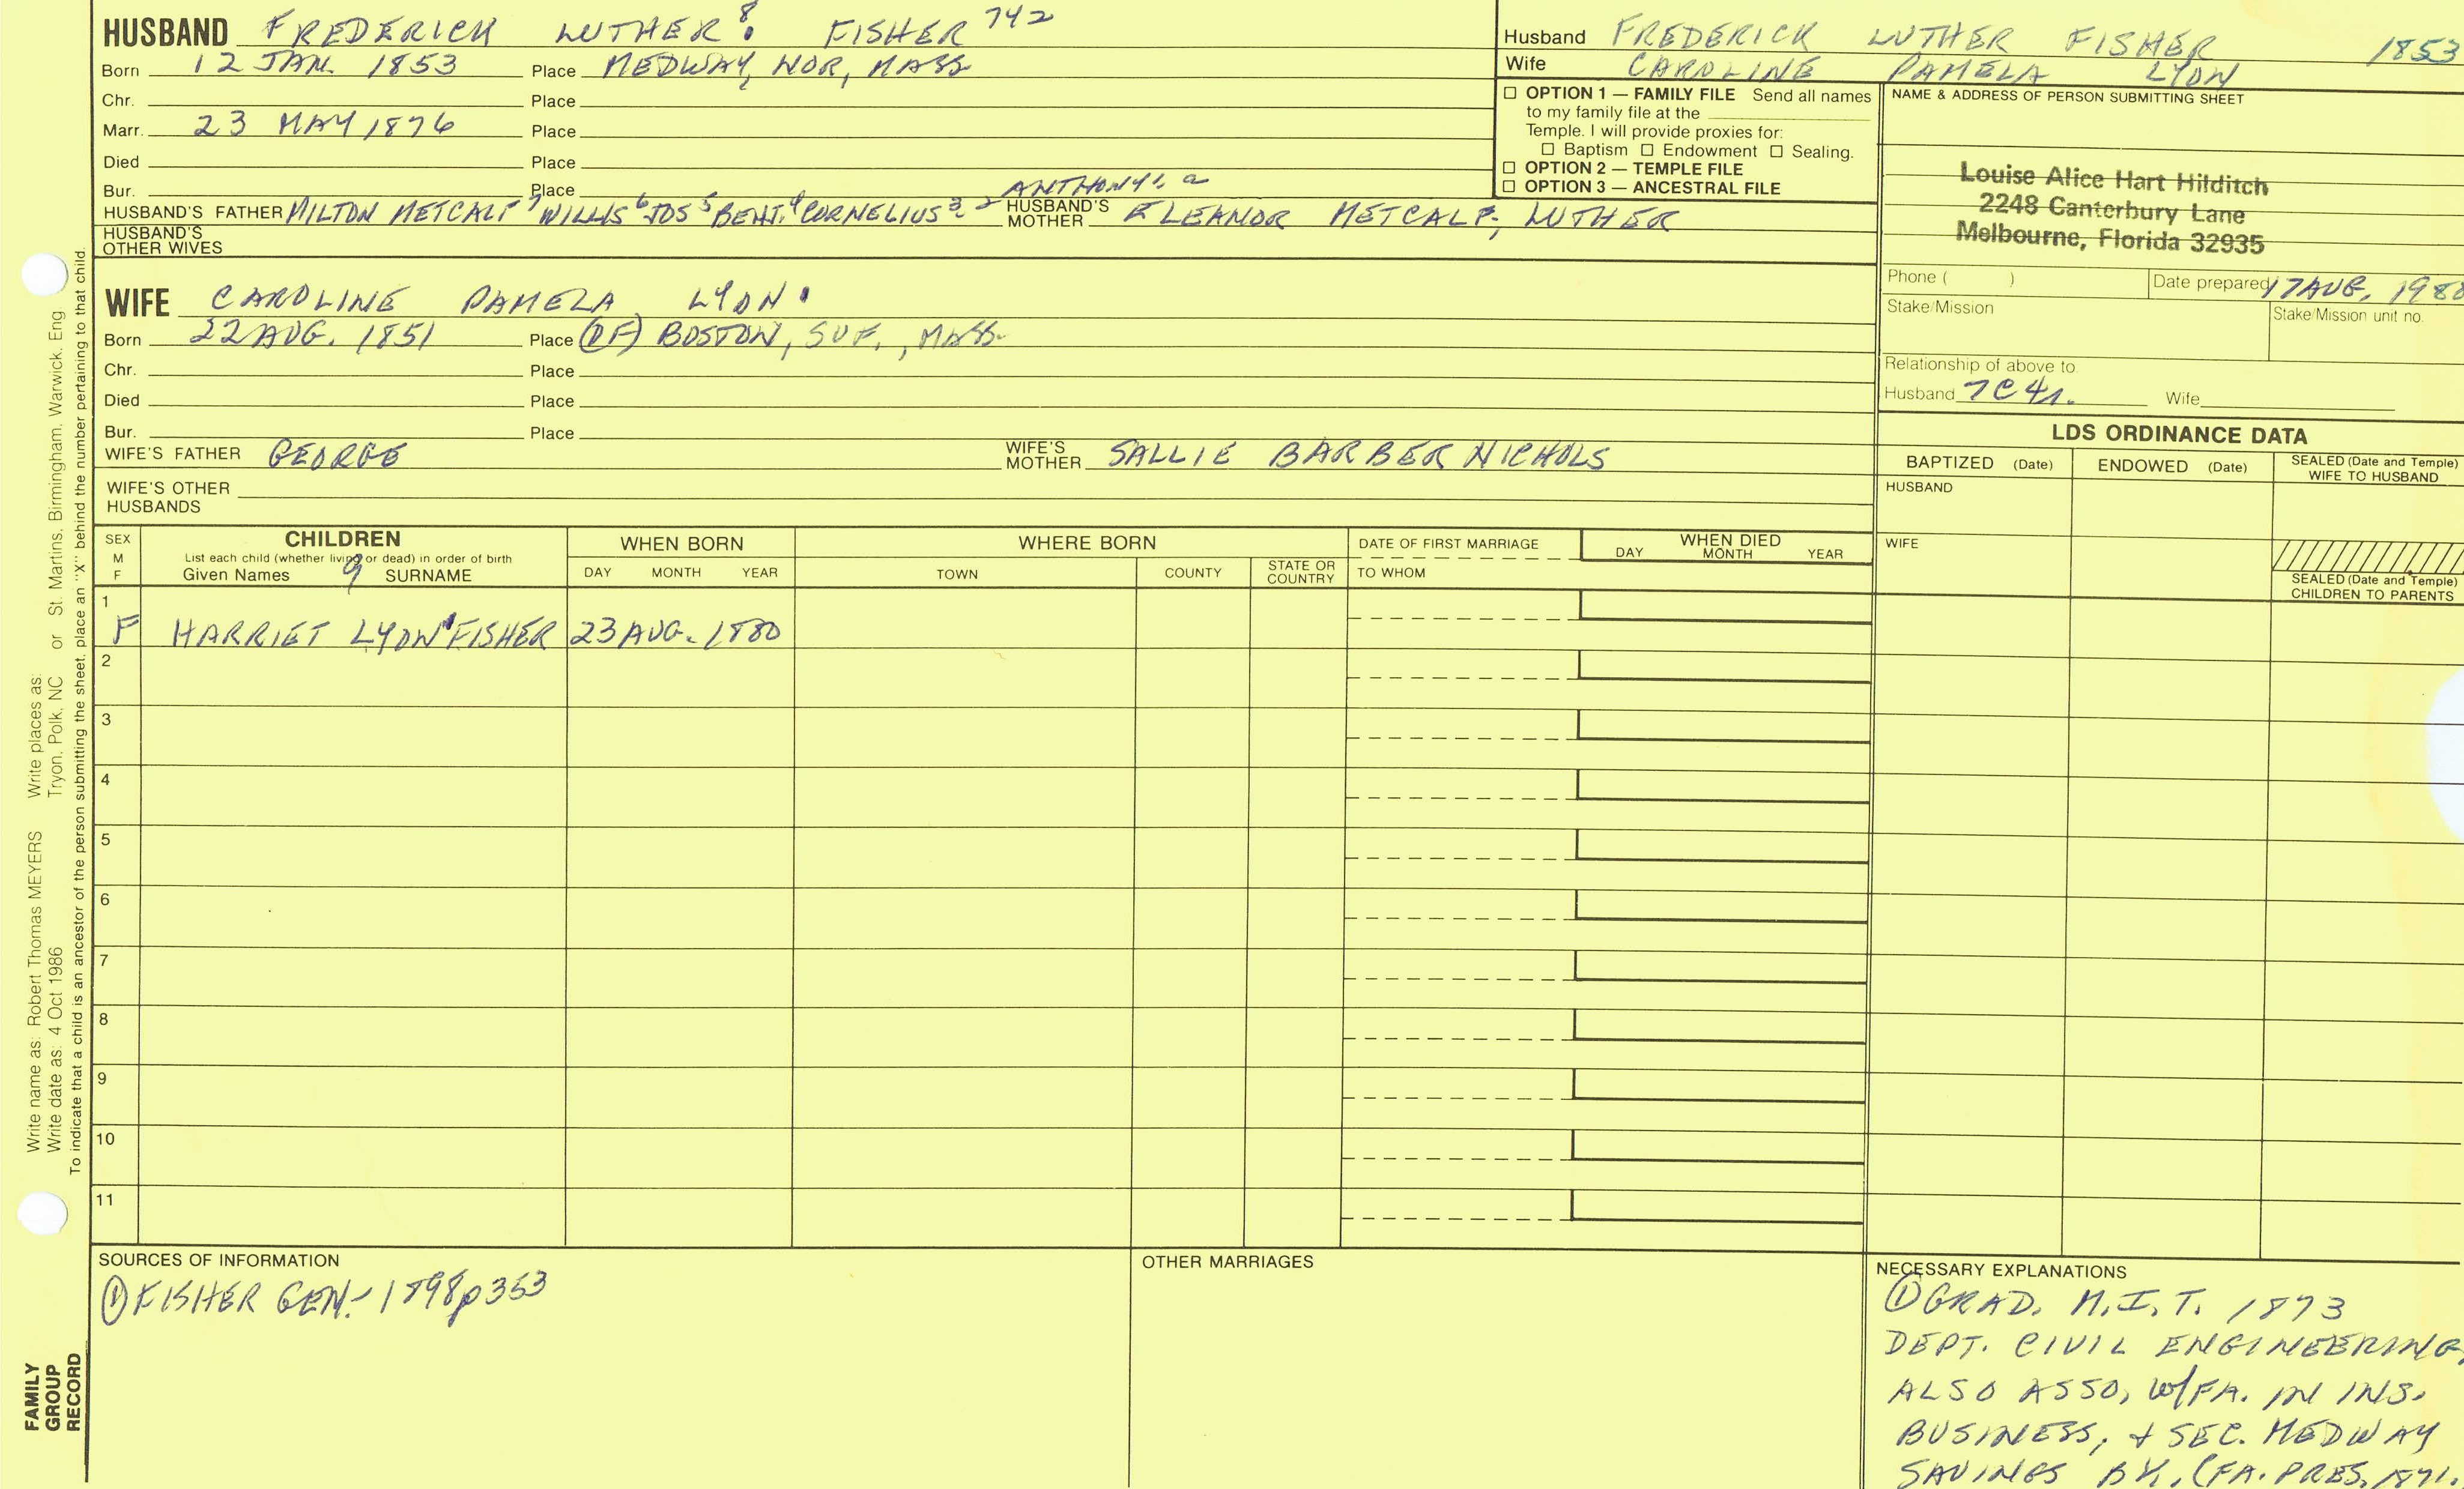 HUSBAND FREDERICK LUTHER 8 FISHER 742
Born 12 JAN. 1853 Place MEDWAY, NOR, MASS
Chr. Place
Marr. 23 MAY 1876 Place
Died Place
Bur. Place
HUSBAND'S FATHER MILTON METCALF 7 WILLIS 6 JOS 5 BENJ. 4 CORNELIUS 3 ANTHONY HUSBAND'S MOTHER ELEANOR METCALF, LUTHER
HUSBAND'S OTHER WIVES
Husband FREDERICK LUTHER FISHER 1853
Wife CAROLINE PAMELA LYON
☐ OPTION 1 — FAMILY FILE Send all names
to my family file at the
Temple. I will provide proxies for:
☐ Baptism ☐ Endowment ☐ Sealing.
☐ OPTION 2 — TEMPLE FILE
☐ OPTION 3 — ANCESTRAL FILE
NAME & ADDRESS OF PERSON SUBMITTING SHEET
Louise Alice Hart Hilditch
2248 Canterbury Lane
Melbourne, Florida 32935
Phone ( ) Date prepared 17 AUG, 198
Stake/Mission Stake/Mission unit no.
Relationship of above to
Husband 7C4r. Wife
WIFE CAROLINE PAMELA LYON
Born 22 AUG. 1851 Place (OF) BOSTON, SUF., MASS.
Chr. Place
Died Place
Bur. Place
WIFE'S FATHER GEORGE WIFE'S MOTHER SALLIE BARBER NICHOLS
WIFE'S OTHER
HUSBANDS
LDS ORDINANCE DATA
BAPTIZED (Date) ENDOWED (Date) SEALED (Date and Temple) WIFE TO HUSBAND
HUSBAND
WIFE
SEALED (Date and Temple)
CHILDREN TO PARENTS
SEX
M
F
CHILDREN
List each child (whether living or dead) in order of birth
Given Names 9 SURNAME
WHEN BORN
DAY MONTH YEAR
WHERE BORN
TOWN COUNTY STATE OR COUNTRY
DATE OF FIRST MARRIAGE
TO WHOM
WHEN DIED
DAY MONTH YEAR
1
F HARRIET LYON FISHER 23 AUG. 1880
2
3
4
5
6
7
8
9
10
11
SOURCES OF INFORMATION
① FISHER GEN.-1898 p353
OTHER MARRIAGES
NECESSARY EXPLANATIONS
① GRAD. M.I.T. 1873
DEPT. CIVIL ENGINEERING,
ALSO ASSO, W/FA. IN INS.
BUSINESS, & SEC. MEDWAY
SAVINGS BK. (FA. PRES. 1871.
Write name as: Robert Thomas MEYERS Write places as:
Write date as: 4 Oct 1986 Tryon, Polk, NC or St. Martins, Birmingham, Warwick, Eng
To indicate that a child is an ancestor of the person submitting the sheet, place an "X" behind the number pertaining to that child.
FAMILY
GROUP
RECORD